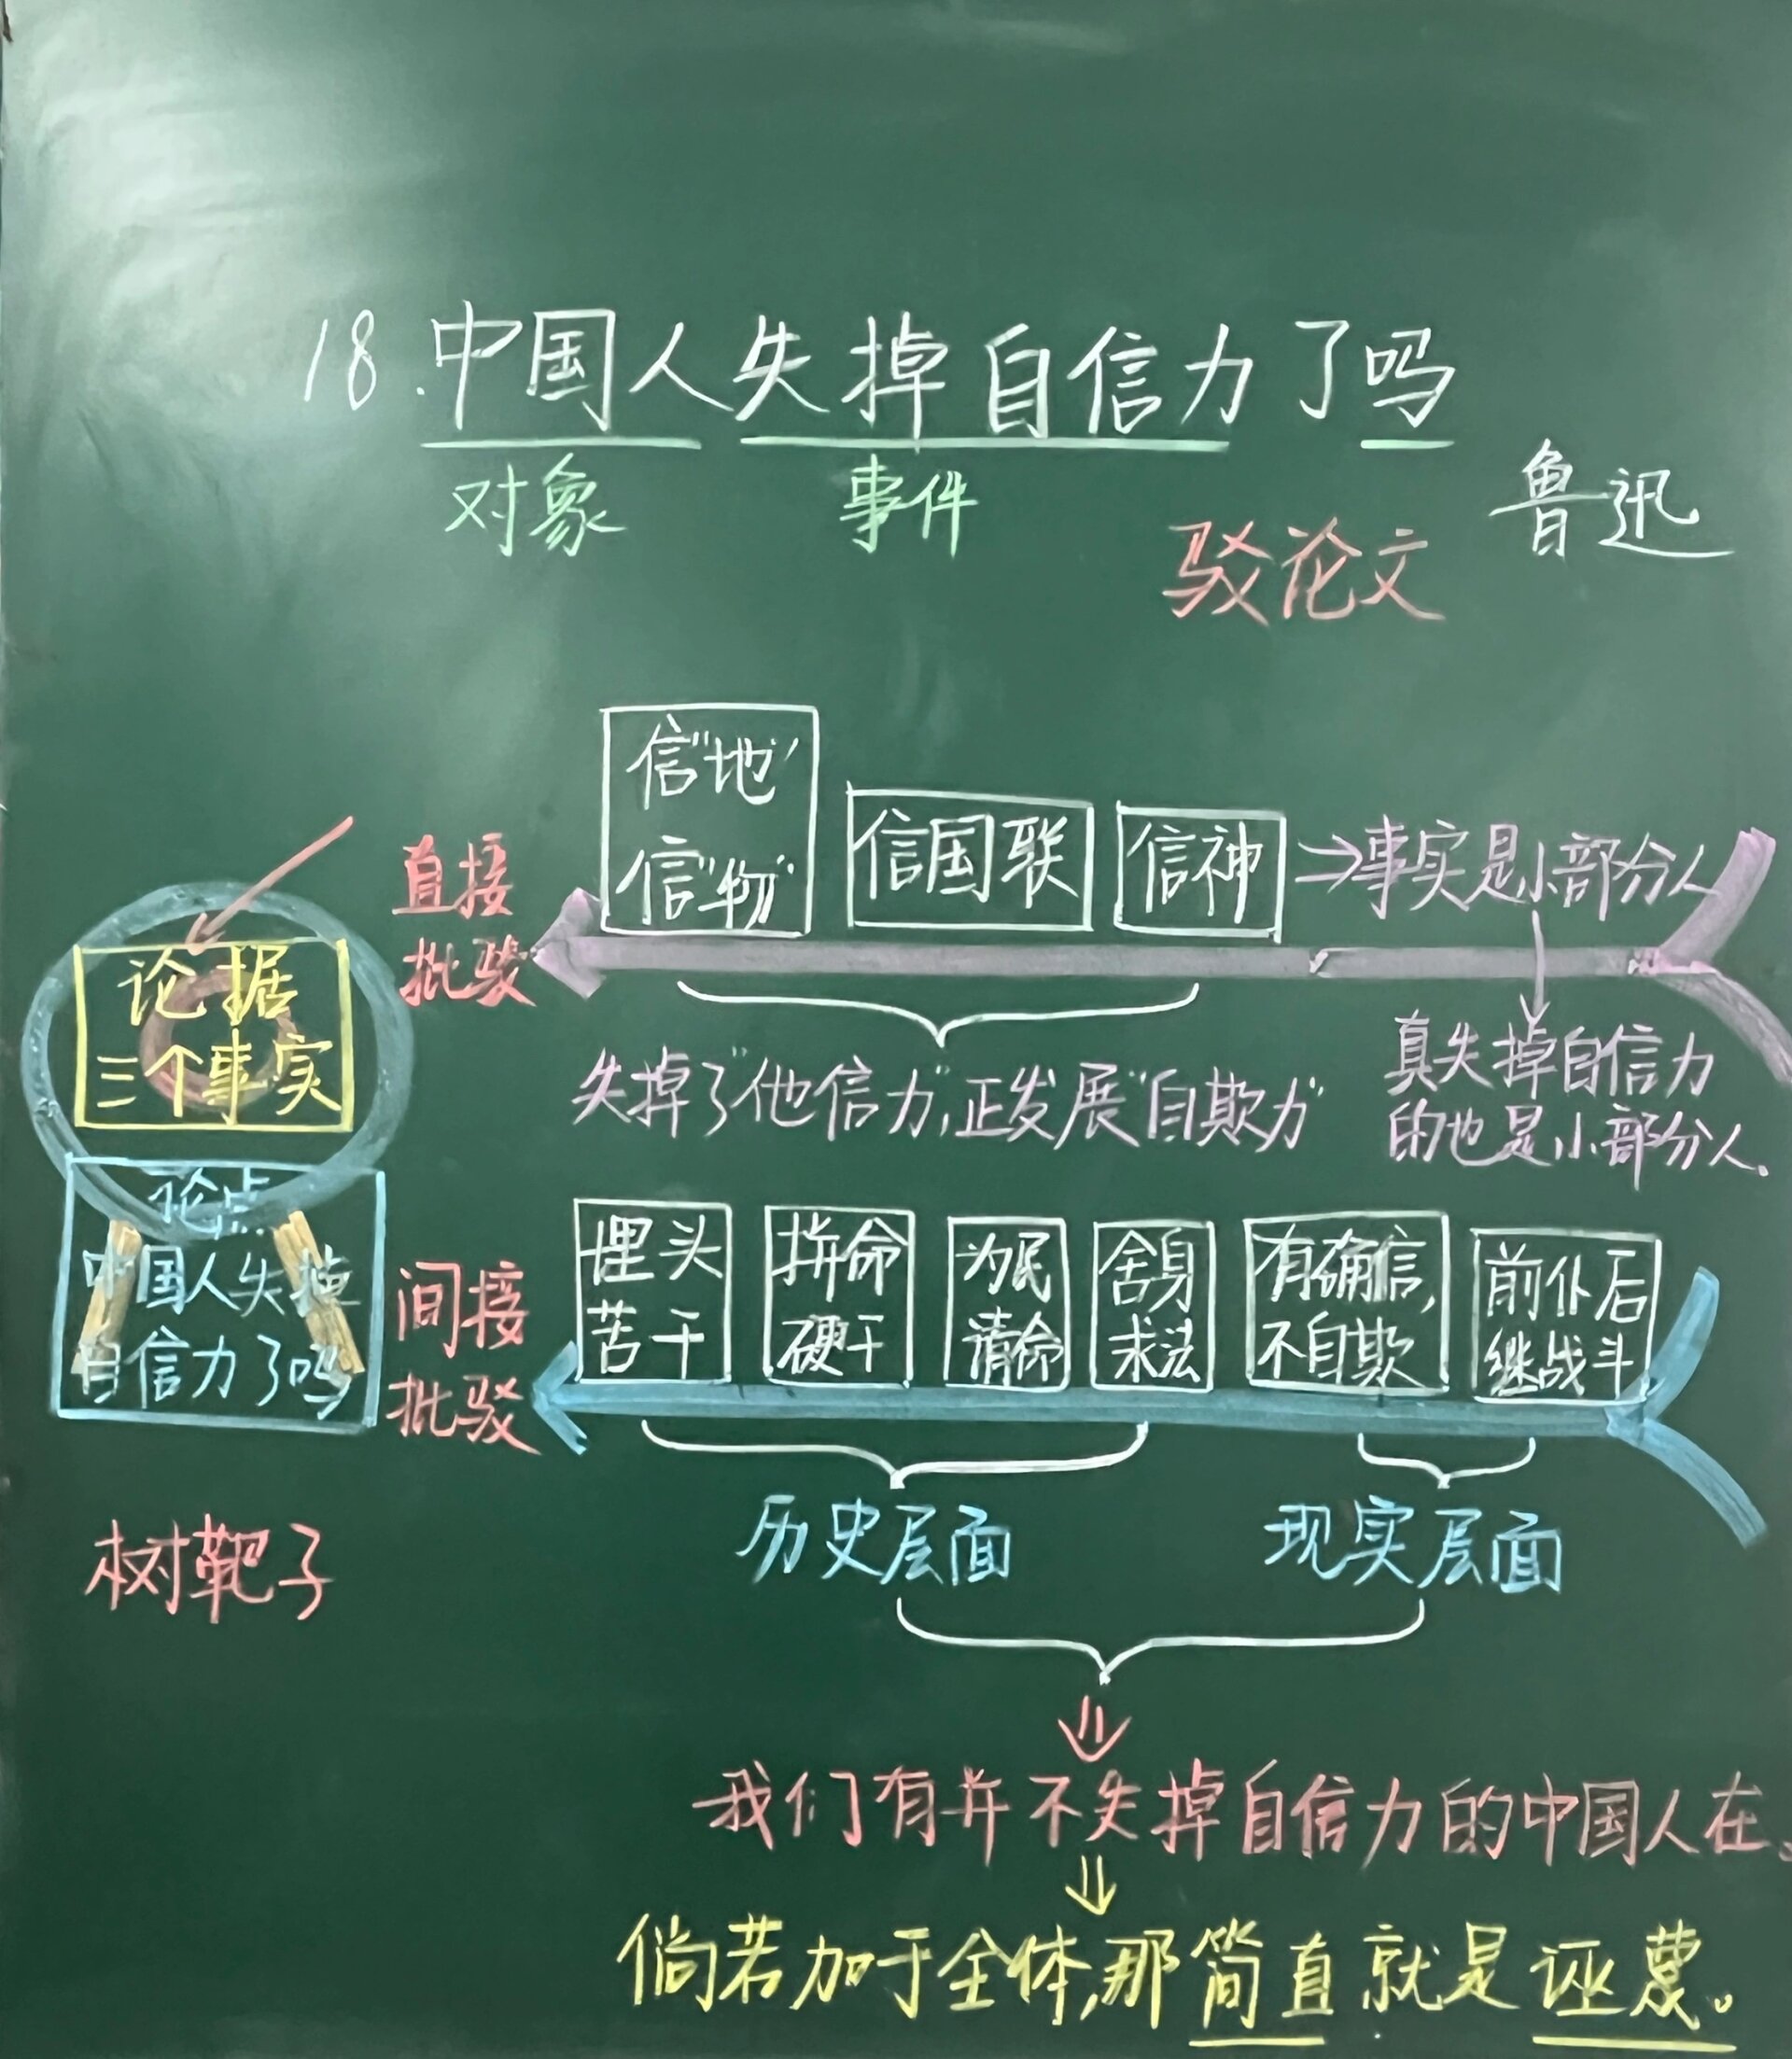 18.中国人失掉自信力了吗
对象
事件
鲁迅
驳论文
信"地"
信"物"
信国联
信神
→事实是小部分人
直接
批驳
论据
三个事实
失掉了"他信力",正发展"自欺力"
真失掉自信力
的也是小部分人.
论点
中国人失掉
自信力了吗
间接
批驳
埋头
苦干
拚命
硬干
为民
请命
舍身
求法
有确信,
不自欺
前仆后
继战斗
历史层面
现实层面
树靶子
我们有并不失掉自信力的中国人在。
倘若加于全体,那简直就是诬蔑。